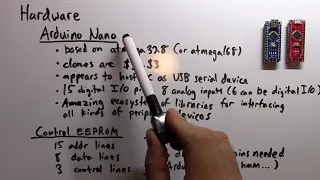 Hardware
Arduino Nano
• based on atmega328 (or atmega168)
• clones are $3
• appears to host as USB serial device
• 15 digital I/O p 8 analog inputs (6 can be digital I/O)
• Amazing ecosystem of libraries for interfacing
all kinds of periph devices
Control EEPROM
15 addr lines
8 data lines ins needed
3 control lines hmm...)